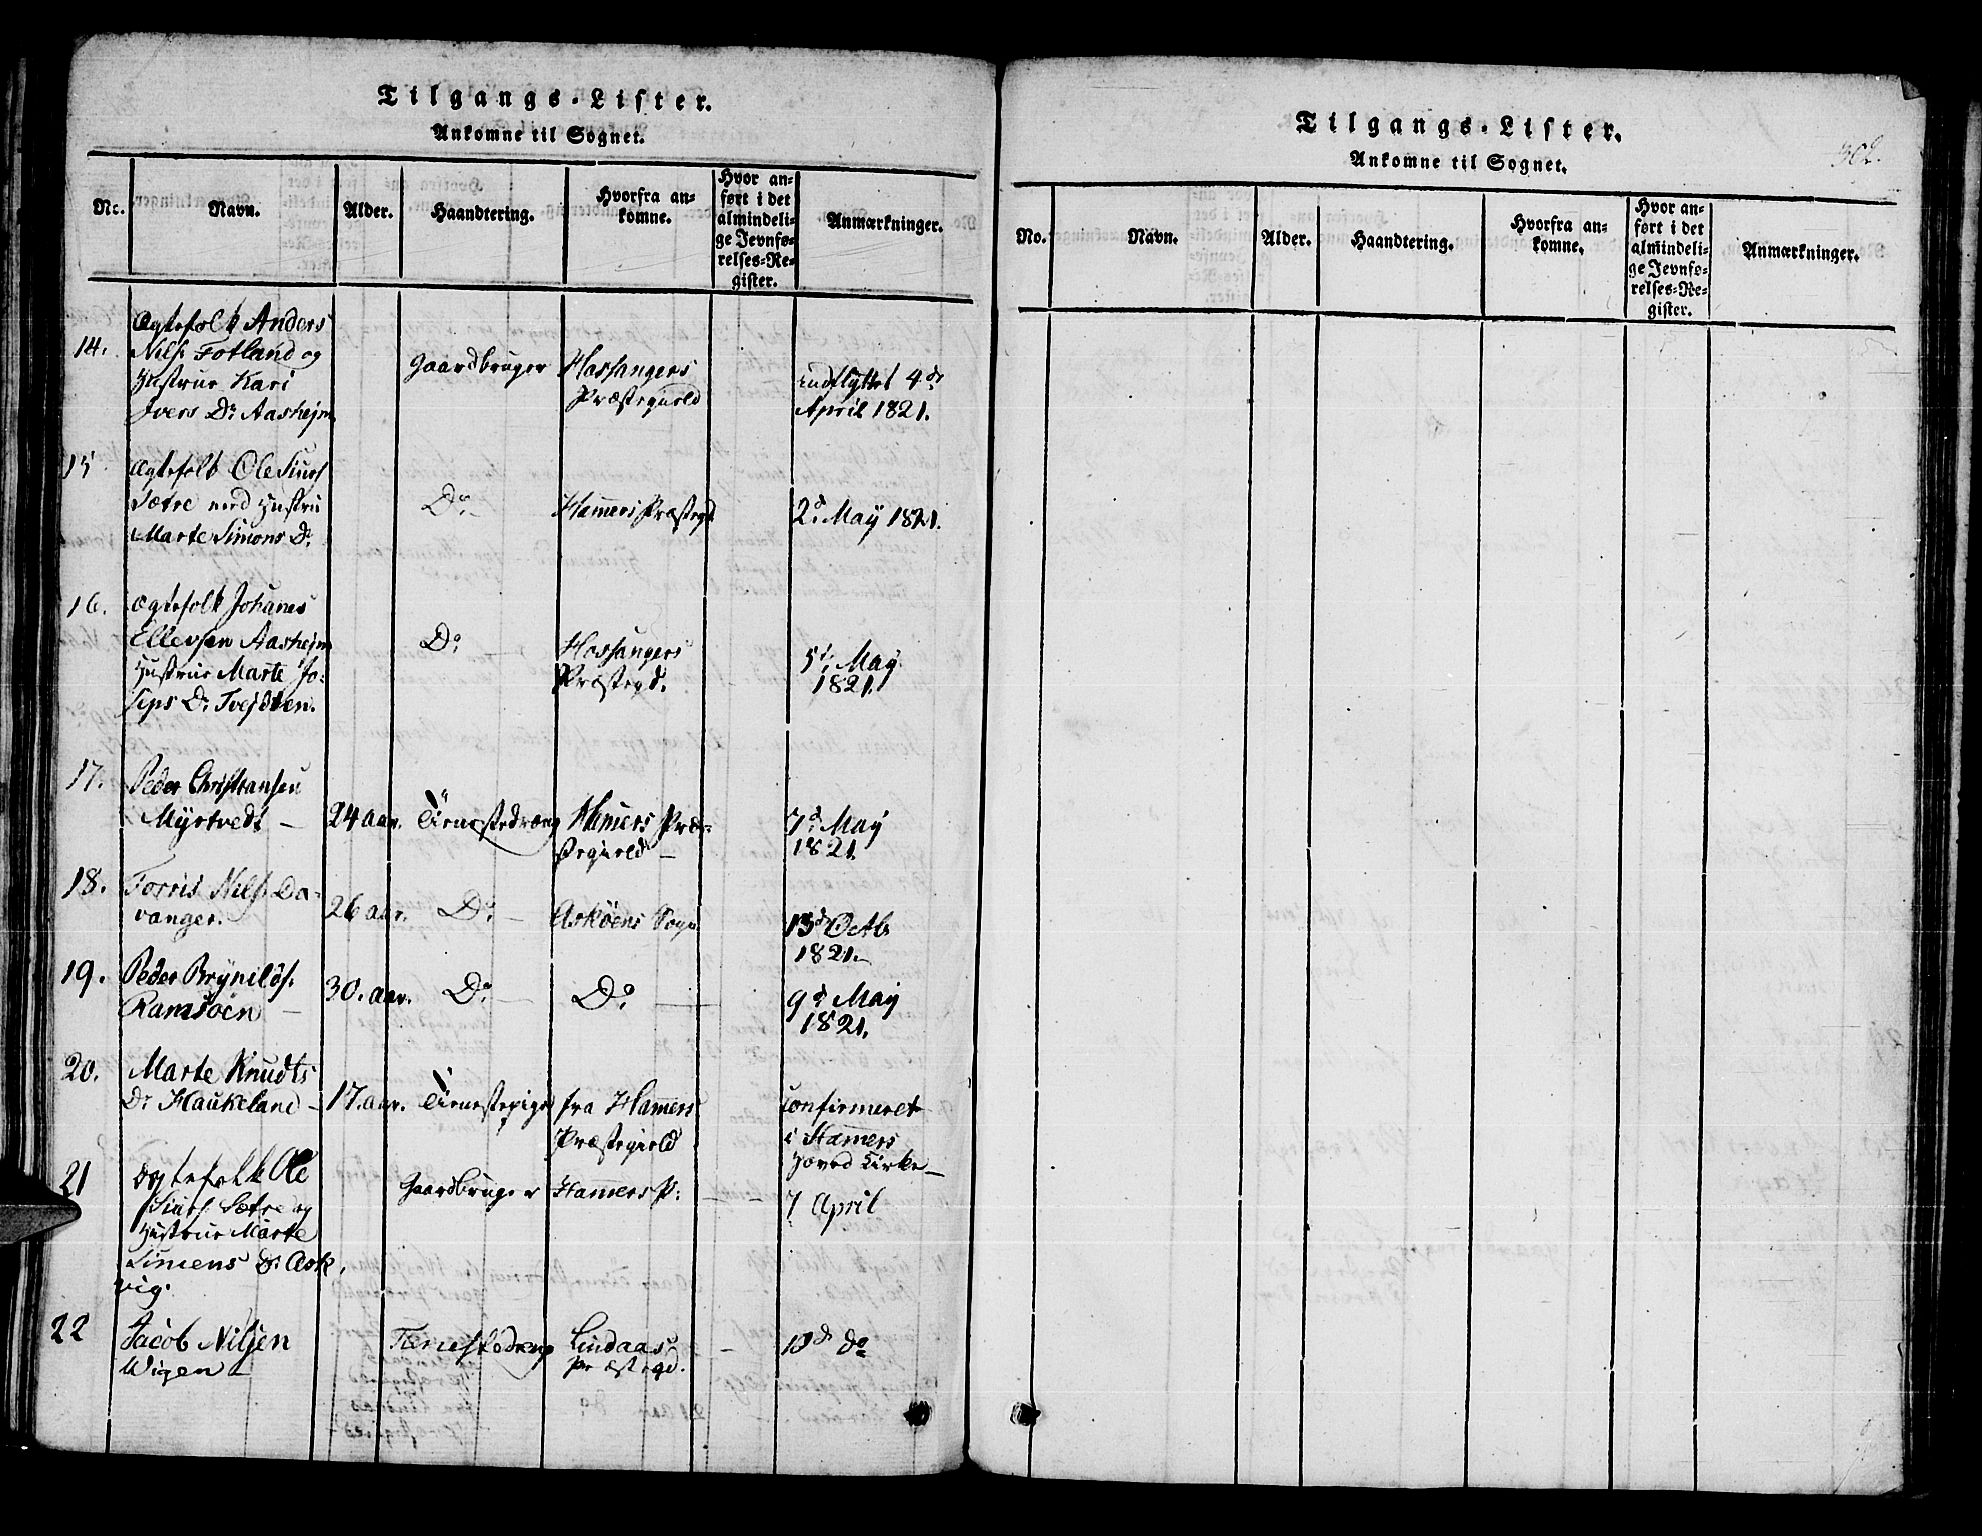 Tilgangs-Lister.
Ankomne til Sognet.
No. Navn. Alder. Haandtering. Hvorfra ankomne. Hvor anført i det almindelige Jevnførelses-Register. Anmærkninger.
14. Ægtefolk Anders
Nils. Fotland og
Hustrue Kari
Ivers Dr Aashejm
Gaardbruger
Hossangers
Præstegield
indflyttet 4de
April 1821.
15 Ægtefolk Ole Siurs
Sætre med Hustru
Marte Simons Dr
Do.
Hamers Præstegd
2d May 1821.
16. Ægtefolk Johanes
Ellevsen Aashejm
Hustrue Marte Jo-
seps Dr Tvejdten.
Do
Hossangers
Præstegd.
5t. May
1821.
17. Peder Christiansen
Myrtvedt —
24 aar.
Tienestedreng
Hamers Præ-
stegield —
7d May
1821.
18. Torris Nils. Da-
vanger.
26 aar.
Do. —
Askøens Sogn
13d Octb.
1821. —
19. Peder Brynilds.
Ramsøen —
30. aar.
Do. —
Do —
9d May
1821.
20. Marte Knudts
Dr Haukeland —
17. aar.
Tienestepige
fra Hamers
Præstegield
confirmeret
i Hamers
Hoved Kirke —
21 Ægtefolk Ole
Siurs. Sætre og
Hustrue Marte
Simens Dr Ask
vig.
Gaardbruger
Hamers P:
7 April
22 Jacob Nilsen
Wigen —
Tienestedreng
Lindaas
Præstegd.
10d do
Tilgangs-Lister.
Ankomne til Sognet.
302.
No. Navn. Alder. Haandtering. Hvorfra ankomne. Hvor anført i det almindelige Jevnførelses-Register. Anmærkninger.